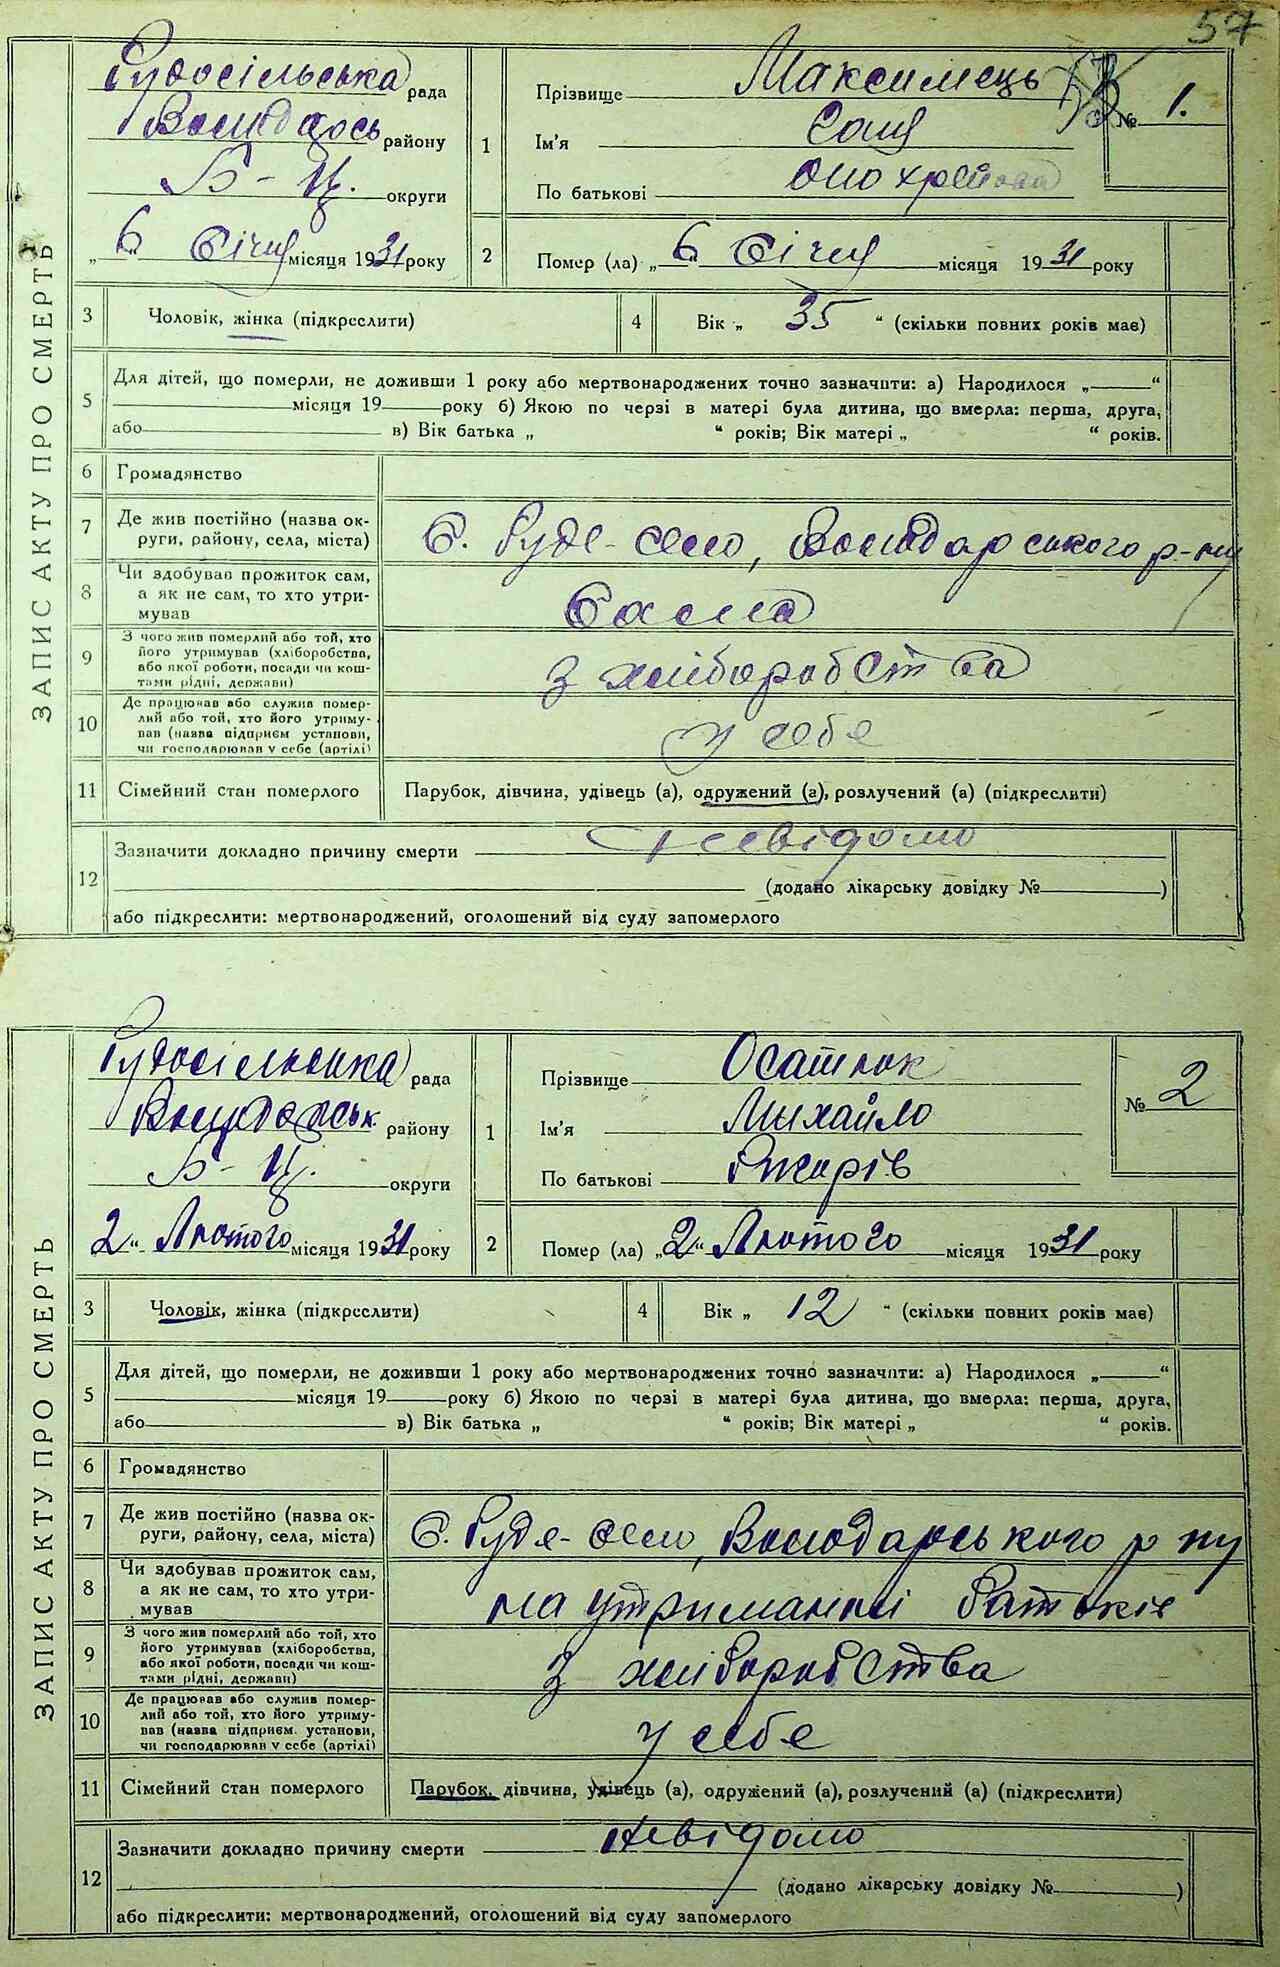 57
ЗАПИС АКТУ ПРО СМЕРТЬ
Рудосільська рада
Володарськ району
Б-Ц. округи
„6“ Січня місяця 1931 року
1
Прізвище Максимець
Ім'я
По батькові
№ 1.
2 Помер (ла) „6“ Січня місяця 1931 року
3 Чоловік, жінка (підкреслити)
4 Вік „ 35 “ (скільки повних років має)
5 Для дітей, що померли, не доживши 1 року або мертвонароджених точно зазначити: а) Народилося „——“
місяця 19——року б) Якою по черзі в матері була дитина, що вмерла: перша, друга,
або—— в) Вік батька „ “ років; Вік матері „ “ років.
6 Громадянство
7 Де жив постійно (назва ок-
руги, району, села, міста)
С. Руде-село, Володарського р-ну
8 Чи здобував прожиток сам,
а як не сам, то хто утри-
мував
Сама
9 З чого жив померлий або той, хто
його утримував (хліборобства,
або якої роботи, посади чи кош-
тами рідні, держави)
з хліборобства
10 Де працював або служив помер-
лий або той, хто його утриму-
вав (назва підприєм установи,
чи господарював у себе (артілі)
у себе
11 Сімейний стан померлого
Парубок, дівчина, удівець (а), одружений (а), розлучений (а) (підкреслити)
12 Зазначити докладно причину смерти невідомо
(додано лікарську довідку №——)
або підкреслити: мертвонароджений, оголошений від суду запомерлого
ЗАПИС АКТУ ПРО СМЕРТЬ
Рудосільська рада
Володарськ. району
Б-Ц. округи
2“ Лютого місяця 1931 року
1
Прізвище Осатюк
Ім'я Михайло
По батькові
№ 2
2 Помер (ла) „2“ Лютого місяця 1931 року
3 Чоловік, жінка (підкреслити)
4 Вік „ 12 “ (скільки повних років має)
5 Для дітей, що померли, не доживши 1 року або мертвонароджених точно зазначити: а) Народилося „——“
місяця 19——року б) Якою по черзі в матері була дитина, що вмерла: перша, друга,
або—— в) Вік батька „ “ років; Вік матері „ “ років.
6 Громадянство
7 Де жив постійно (назва ок-
руги, району, села, міста)
С. Руде-село, Володарського р ну
8 Чи здобував прожиток сам,
а як не сам, то хто утри-
мував
на утриманні батьків
9 З чого жив померлий або той, хто
його утримував (хліборобства,
або якої роботи, посади чи кош-
тами рідні, держави)
з хліборобства
10 Де працював або служив помер-
лий або той, хто його утриму-
вав (назва підприєм. установи,
чи господарював у себе (артілі)
у себе
11 Сімейний стан померлого
Парубок, дівчина, удівець (а), одружений (а), розлучений (а) (підкреслити)
12 Зазначити докладно причину смерти невідомо
(додано лікарську довідку №——)
або підкреслити: мертвонароджений, оголошений від суду запомерлого